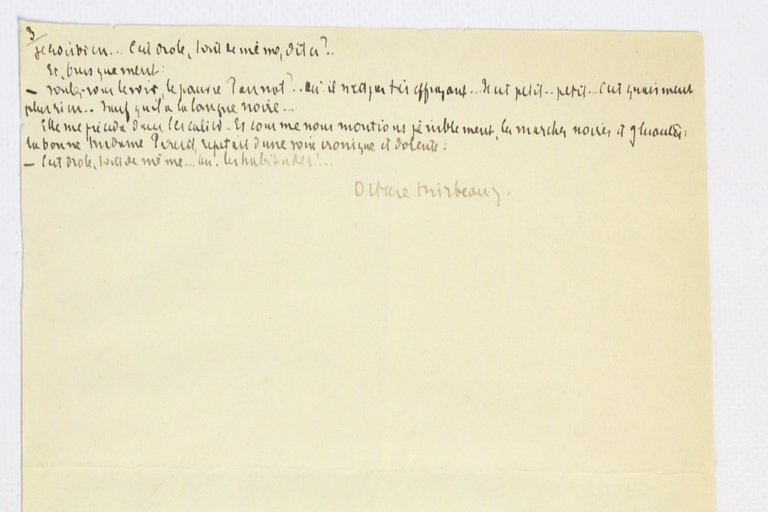 3
... C'est drole, tout de même, dites ?..
Et, brusquement :
— voulez-vous le voir, le pauvre ... ?.. Ah ! il n'est pas très effrayant... Il est petit... petit... C'est quasiment
plus rien... Sauf qu'il a la langue noire...
Elle me précéda dans l'escalier.. Et comme nous montions péniblement, les marches noires et gluantes,
la bonne Madame ..., répétait d'une voix ironique et dolente :
— C'est drole, tout de même... Ah ! les habitudes !...
Octave Mirbeau